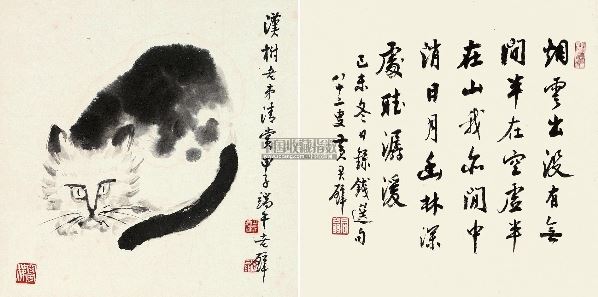 漢樹老弟清賞甲子端午君璧
烟雲出没有無
間半在空虛半
在山我亦閒中
消日月幽林深
處聽潺湲
己未冬日録錢選句
八十二叟黃君璧
中国收藏指数